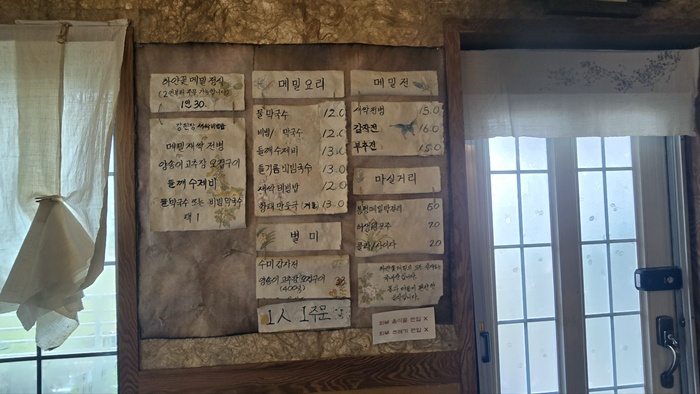 하얀꽃 메밀 정식
(2인부터 주문 가능합니다)
1인 30.
강된장 새싹비빔밥
메밀 새싹 전병
양송이 고추장 오징구이
들깨 수제비
물막국수 또는 비빔 막국수
택 1
메밀요리
물 막국수 12.0
비빔/ 막국수 12.0
들깨 수제비 13.0
들기름 비빔국수 13.0
새싹 비빔밥 12.0
황태 만둣국 (겨울) 13.0
별미
수미 감자전
양송이 고추장 오징구이 33
(400g)
1人 1주문
메밀전
새싹전병 15.0
감자전 16.0
부추전 15.0
마실거리
봉평메밀막걸리 6.0
7.0
콜라/사이다 2.0
외부 음식물 반입 X
외부 쓰레기 반입 X